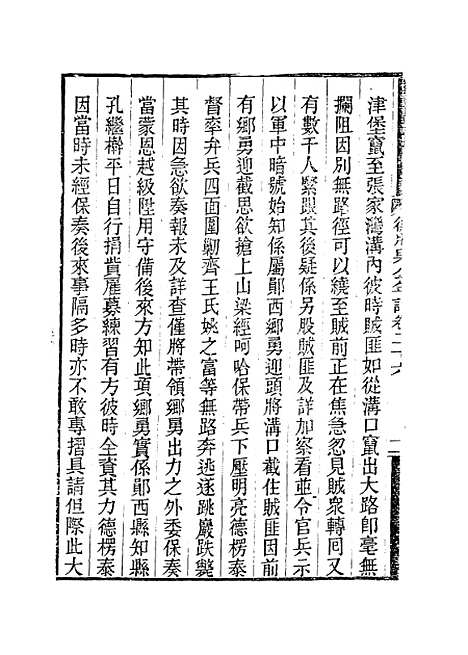 津堡竄至張家灣溝內彼時賊匪如從溝口竄出大路卽毫無
攔阻因別無路徑可以繞至賊前正在焦急忽見賊衆轉囘又
有數千人緊跟其後疑係另股賊匪及詳加察看並令官兵示
以軍中暗號始知係鄖西鄉勇迎頭將溝口截住賊匪因前
有鄉勇迎截思欲搶上山梁經呵哈保帶兵下壓明亮德楞泰
督率弁兵四面圍勦齊王氏姚之富等無路奔逃遂跳巖跌斃
其時因急欲奏報未及詳查僅將帶領鄉勇出力之外委保奏
當蒙恩越級陞用守備後來方知此項鄉勇實係鄖西縣知縣
孔繼檊平日自行捐貲雇募練習有方彼時全資其力德楞泰
因當時未經保奏後來事隔多時亦不敢專摺具請但際此大
卷二十六